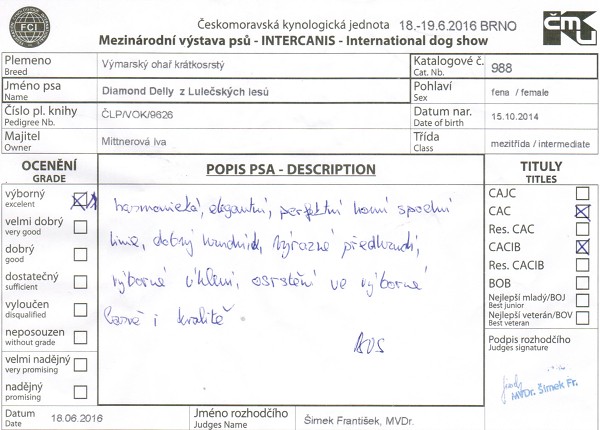 FCI
Českomoravská kynologická jednota 18.-19.6.2016 BRNO
Mezinárodní výstava psů - INTERCANIS - International dog show
ČMKU
Plemeno
Breed
Výmarský ohař krátkosrstý
Katalogové č.
Cat. Nb.
988
Jméno psa
Name
Diamond Delly z Lulečských lesů
Pohlaví
Sex
fena / female
Číslo pl. knihy
Pedigree Nb.
ČLP/VOK/9626
Datum nar.
Date of birth
15.10.2014
Majitel
Owner
Mittnerová Iva
Třída
Class
mezitřída / intermediate
OCENĚNÍ
GRADE
výborný
excelent
velmi dobrý
very good
dobrý
good
dostatečný
sufficient
vyloučen
disqualified
neposouzen
without grade
velmi nadějný
very promising
nadějný
promising
POPIS PSA - DESCRIPTION
harmonická, elegantní, perfektní horní spodní
linie, dobrý hrudník, výrazné předhrudí,
výborné úhlení, osrstění ve výborné
barvě i kvalitě
TITULY
TITLES
CAJC
CAC
Res. CAC
CACIB
Res. CACIB
BOB
Nejlepší mladý/BOJ
Best junior
Nejlepší veterán/BOV
Best veteran
Podpis rozhodčího
Judges signature
MVDr. Šimek Fr.
Datum
Date
18.06.2016
Jméno rozhodčího
Judges Name
Šimek František, MVDr.